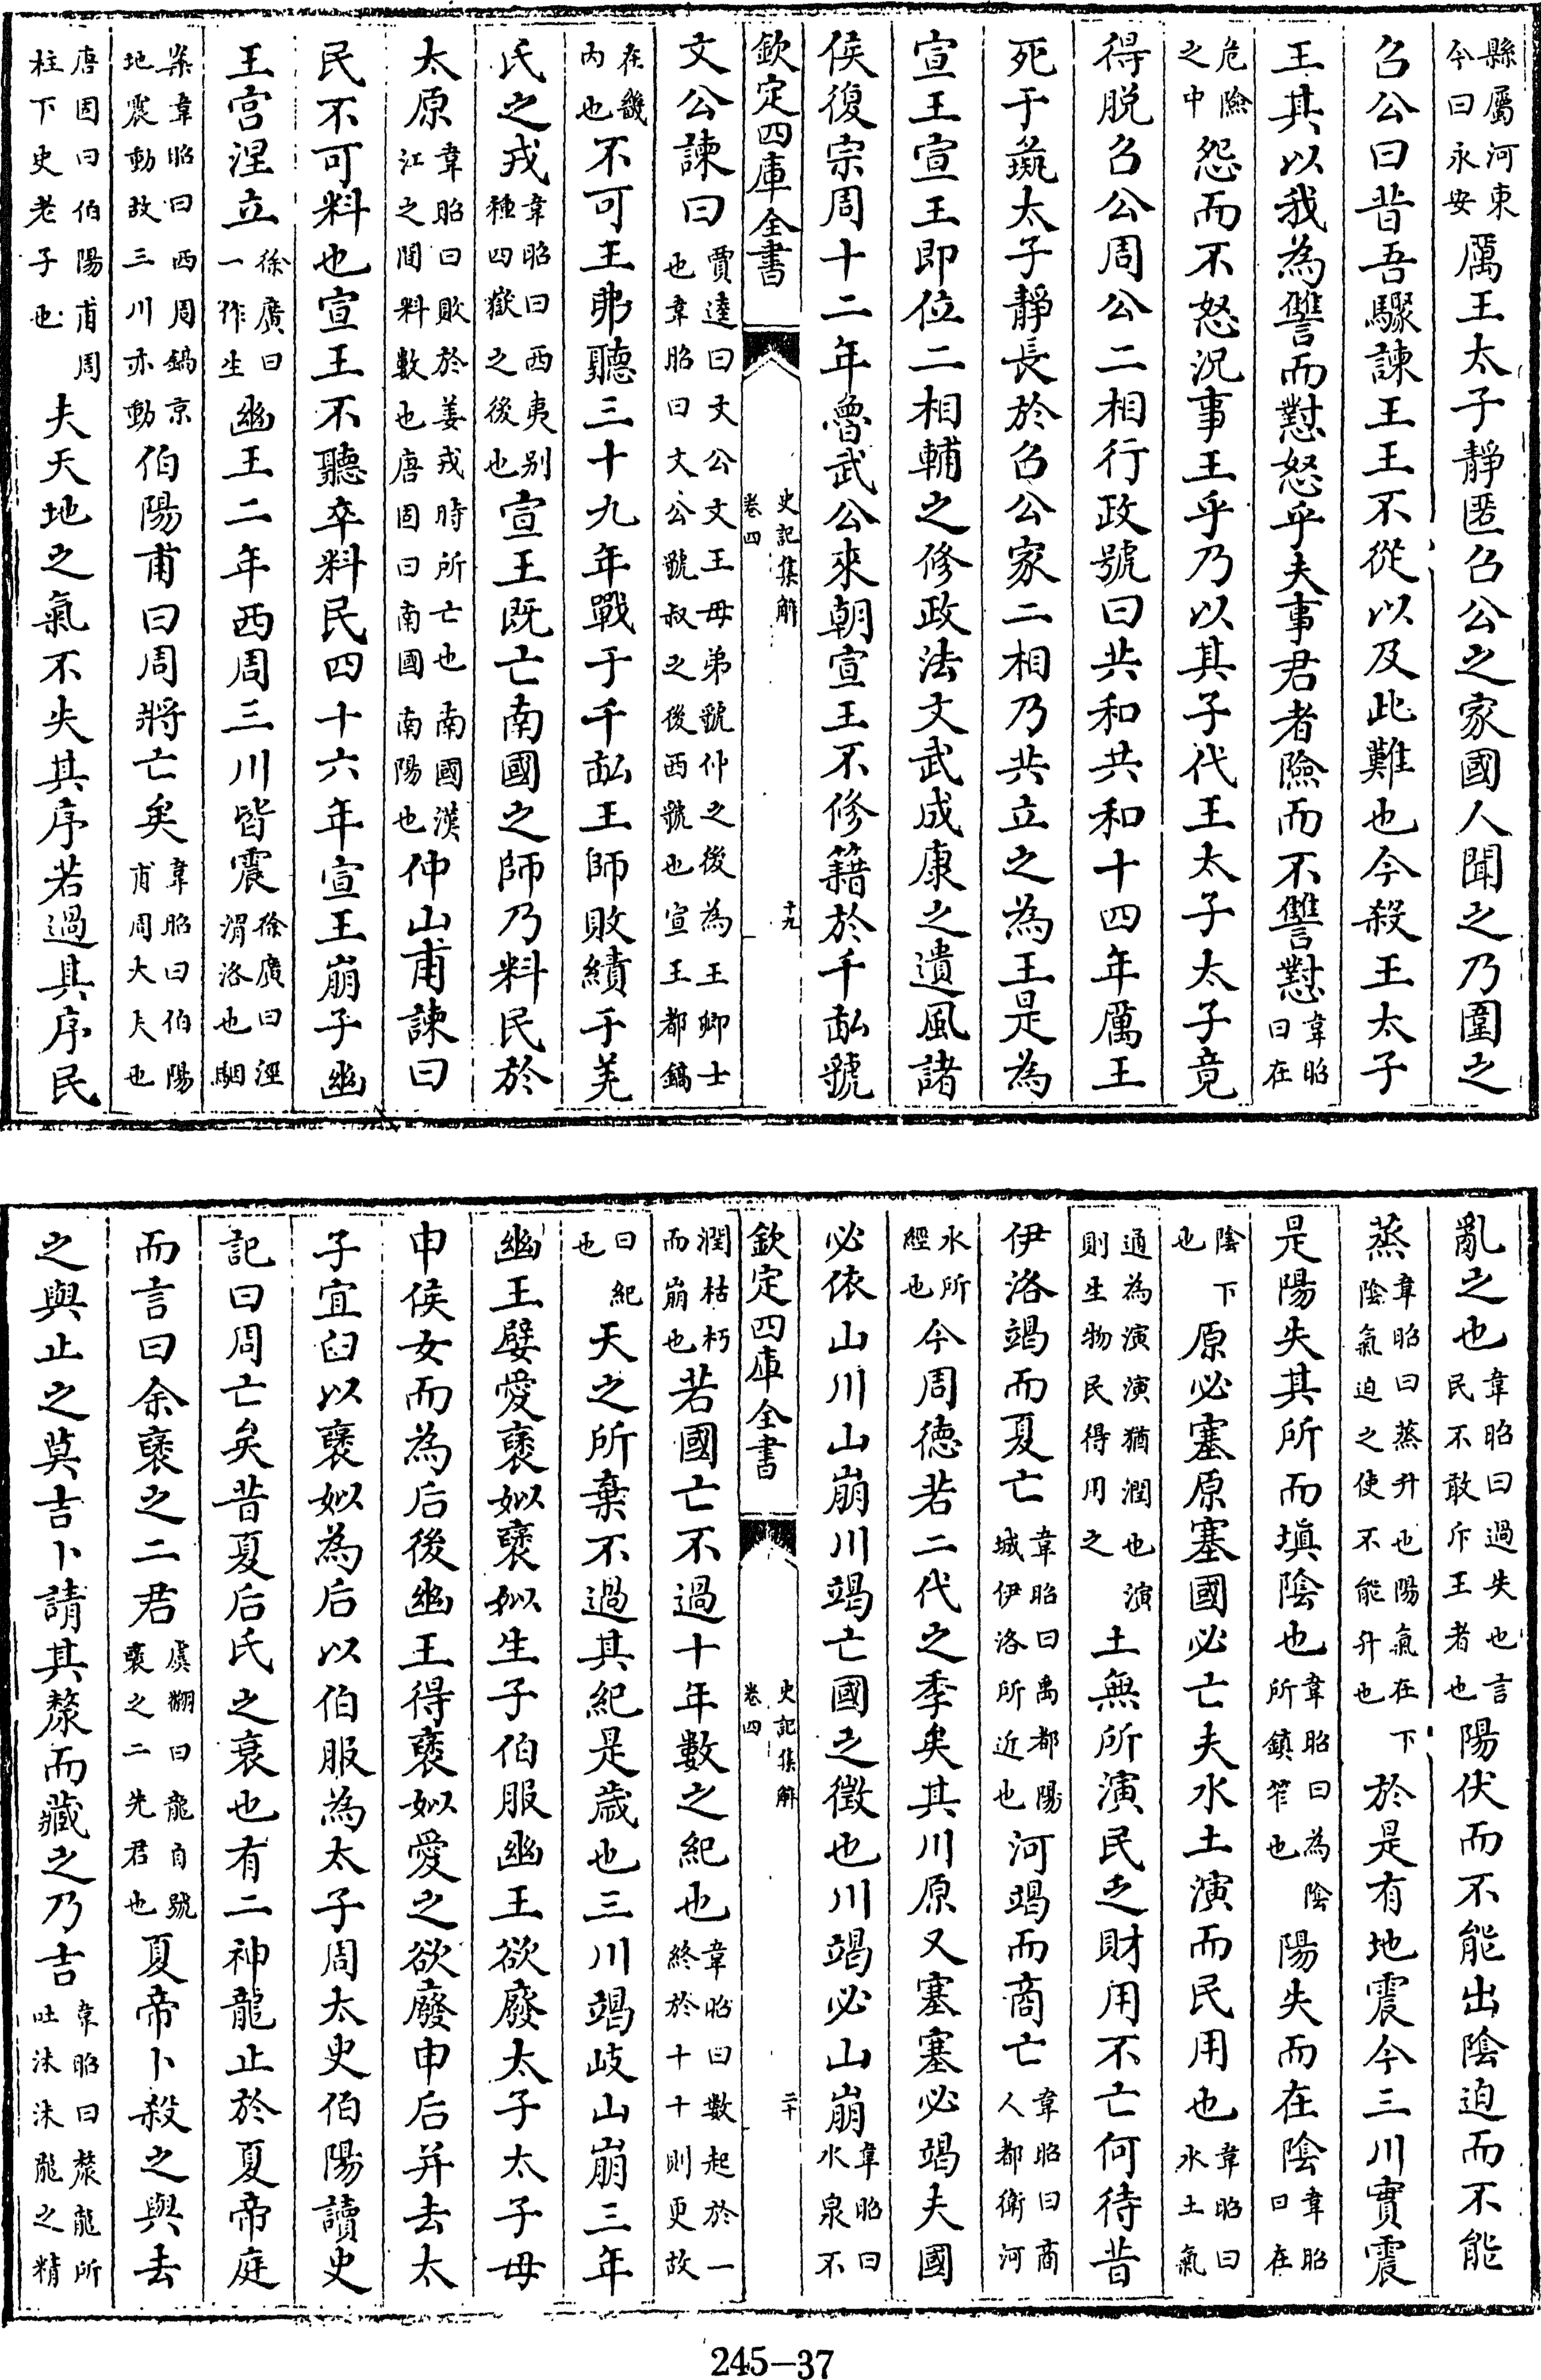 縣屬河東今曰永安厲王太子靜匿召公之家國人聞之乃圍之
召公曰昔吾驟諫王王不從以及此難也今殺王太子
王其以我為讐而懟怒乎夫事君者險而不讐懟韋昭曰在
危險之中怨而不怒況事王乎乃以其子代王太子太子竟
得脱召公周公二相行政號曰共和共和十四年厲王
死于彘太子靜長於召公家二相乃共立之為王是為
宣王宣王即位二相輔之修政法文武成康之遺風諸
侯復宗周十二年魯武公來朝宣王不修籍於千畝虢
欽定四庫全書
史記集解
卷四
十九
文公諫曰賈逵曰文公文王母弟虢仲之後為王卿士也韋昭曰文公虢叔之後西虢也宣王都鎬
在畿内也不可王弗聽三十九年戰于千畝王師敗績于羌
氏之戎韋昭曰西夷别種四嶽之後也宣王既亡南國之師乃料民於
太原韋昭曰敗於姜戎時所亡也南國漢江之間料數也唐固曰南國南陽也仲山甫諫曰
民不可料也宣王不聽卒料民四十六年宣王崩子幽
王宫涅立徐廣曰一作生幽王二年西周三川皆震徐廣曰涇渭洛也駰
案韋昭曰西周鎬京地震動故三川亦動伯陽甫曰周將亡矣韋昭曰伯陽甫周大夫也
唐固曰伯陽甫周柱下史老子也夫天地之氣不失其序若過其序民
亂之也韋昭曰過失也言民不敢斥王者也陽伏而不能出陰迫而不能
蒸韋昭曰蒸升也陽氣在下陰氣迫之使不能升也於是有地震今三川實震
是陽失其所而填陰也韋昭曰為陰所鎮笮也陽失而在陰韋昭曰在
陰下也原必塞原塞國必亡夫水土演而民用也韋昭曰水土氣
通為演演猶潤也演則生物民得用之土無所演民乏財用不亡何待昔
伊洛竭而夏亡韋昭曰禹都陽城伊洛所近也河竭而商亡韋昭曰商人都衛河
水所經也今周德若二代之季矣其川原又塞塞必竭夫國
必依山川山崩川竭亡國之徵也川竭必山崩韋昭曰水泉不
欽定四庫全書
史記集解
卷四
二十
潤枯朽而崩也若國亡不過十年數之紀也韋昭曰數起於一終於十十則更故
曰紀也天之所棄不過其紀是歳也三川竭岐山崩三年
幽王嬖愛褒姒褒姒生子伯服幽王欲廢太子太子母
申侯女而為后後幽王得褒姒愛之欲廢申后并去太
子宜臼以褒姒為后以伯服為太子周太史伯陽讀史
記曰周亡矣昔夏后氏之衰也有二神龍止於夏帝庭
而言曰余褒之二君虞翻曰龍自號褒之二先君也夏帝卜殺之與去
之與止之莫吉卜請其漦而藏之乃吉韋昭曰漦龍所吐沫沫龍之精
245-37